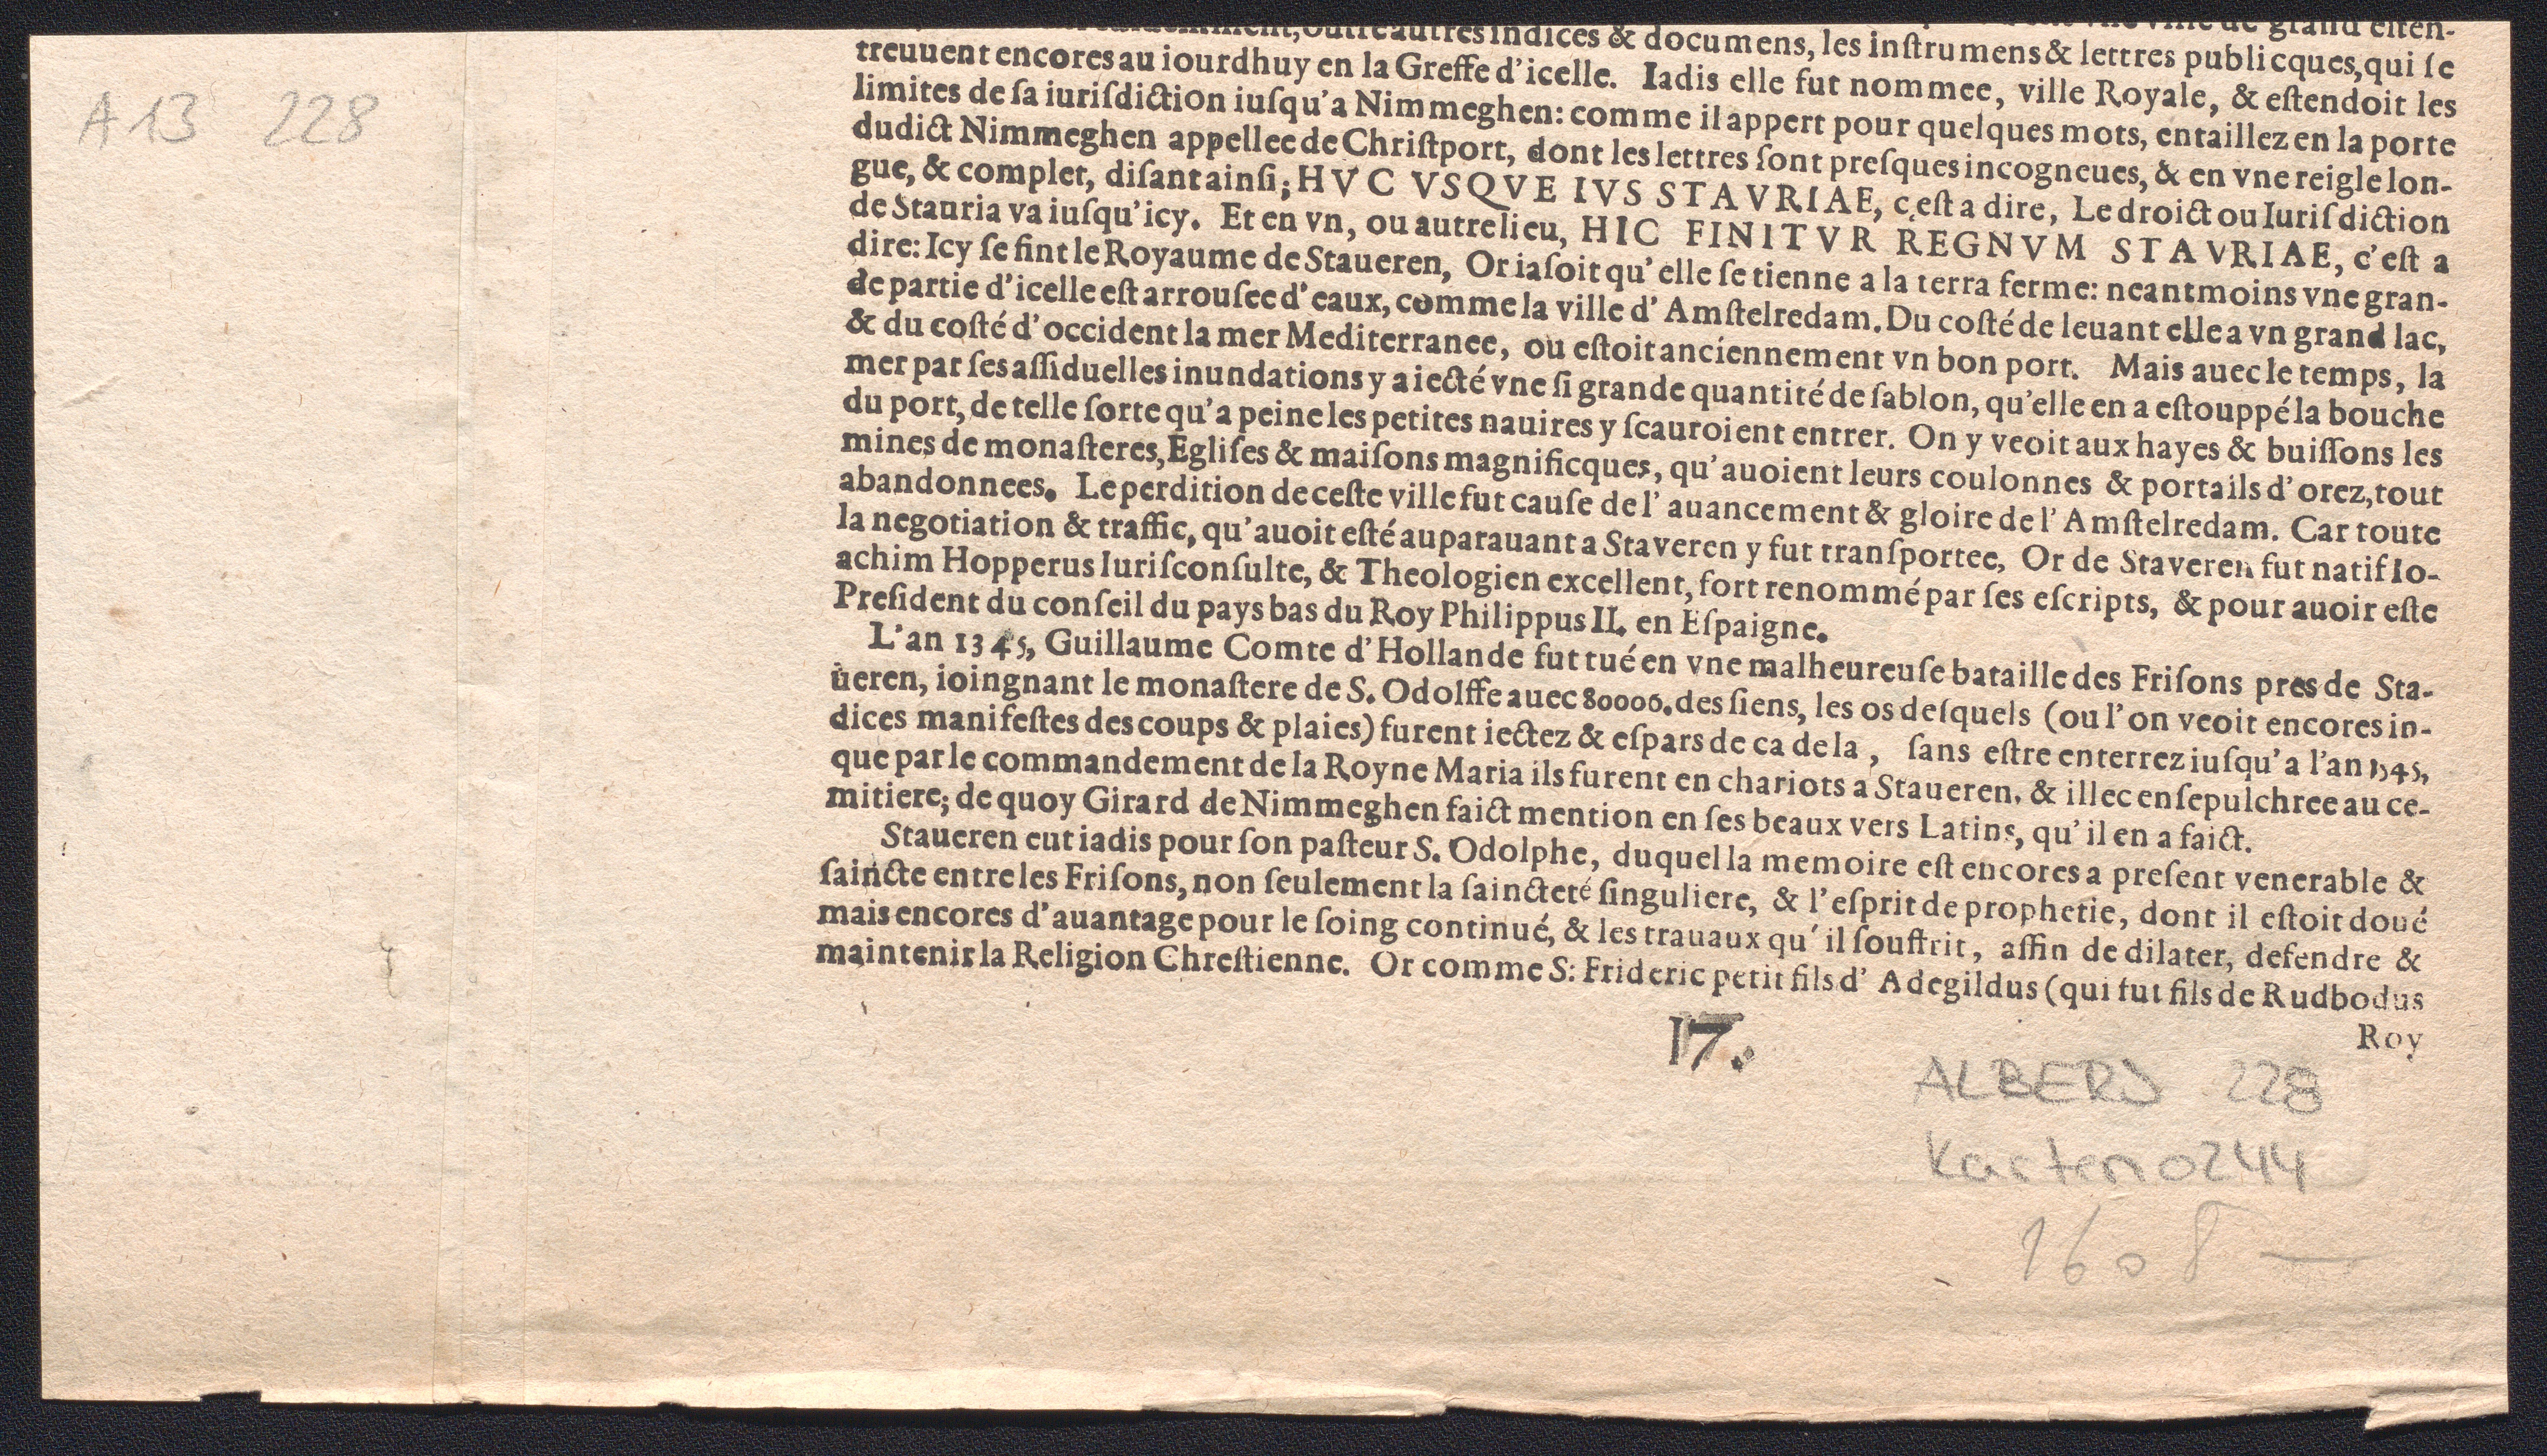 A 13 228
vne ville de grand esten-
outre autres indices & documens, les inſtrumens & lettres publicques, qui ſe
treuuent encores au iourdhuy en la Greffe d'icelle. Iadis elle fut nommee, ville Royale, & eſtendoit les
limites de ſa iuriſdiction iuſqu'a Nimmeghen: comme il appert pour quelques mots, entaillez en la porte
dudict Nimmeghen appellee de Chriſtport, dont les lettres ſont preſques incogneues, & en vne reigle lon-
gue, & complet, diſant ainſi; HVC VSQVE IVS STAVRIAE, c,eſt a dire, Le droict ou Iuriſdiction
de Stauria va iuſqu'icy. Et en vn, ou autre lieu, HIC FINITVR REGNVM STAVRIAE, c'eſt a
dire: Icy ſe fint le Royaume de Staueren, Or iaſoit qu'elle ſe tienne a la terra ferme: neantmoins vne gran-
de partie d'icelle eſt arrouſee d'eaux, comme la ville d'Amſtelredam. Du coſté de leuant elle a vn grand lac,
& du coſté d'occident la mer Mediterranee, ou eſtoit anciennement vn bon port. Mais auec le temps, la
mer par ſes aſſiduelles inundations y a iecté vne ſi grande quantité de ſablon, qu'elle en a eſtouppé la bouche
du port, de telle ſorte qu'a peine les petites nauires y ſcauroient entrer. On y veoit aux hayes & buiſſons les
mines de monaſteres, Egliſes & maiſons magnificques, qu'auoient leurs coulonnes & portails d'orez, tout
abandonnees. Le perdition de ceſte ville fut cauſe de l'auancement & gloire de l'Amſtelredam. Car toute
la negotiation & traffic, qu'auoit eſté auparauant a Staveren y fut tranſportee, Or de Staveren fut natif Io-
achim Hopperus Iuriſconſulte, & Theologien excellent, fort renommé par ſes eſcripts, & pour auoir eſte
Preſident du conſeil du pays bas du Roy Philippus II. en Eſpaigne.
L'an 1345, Guillaume Comte d'Hollande fut tué en vne malheureuſe bataille des Friſons pres de Sta-
ueren, ioingnant le monaſtere de S. Odolffe auec 80000. des ſiens, les os deſquels (ou l'on veoit encores in-
dices manifeſtes des coups & plaies) furent iectez & eſpars de ca de la, ſans eſtre enterrez iuſqu'a l'an 1545,
que par le commandement de la Royne Maria ils furent en chariots a Staueren, & illec enſepulchree au ce-
mitiere; de quoy Girard de Nimmeghen faict mention en ſes beaux vers Latins, qu'il en a faict.
Staueren eut iadis pour ſon paſteur S. Odolphe, duquel la memoire eſt encores a preſent venerable &
ſaincte entre les Friſons, non ſeulement la ſaincteté ſinguliere, & l'eſprit de prophetie, dont il eſtoit doué
mais encores d'auantage pour le ſoing continué, & les trauaux qu'il ſouffrit, affin de dilater, defendre &
maintenir la Religion Chreſtienne. Or comme S: Frideric petit fils d'Adegildus (qui fut fils de Rudbodus
Roy
17.
ALBERD 228
Karten 0244
1608 —